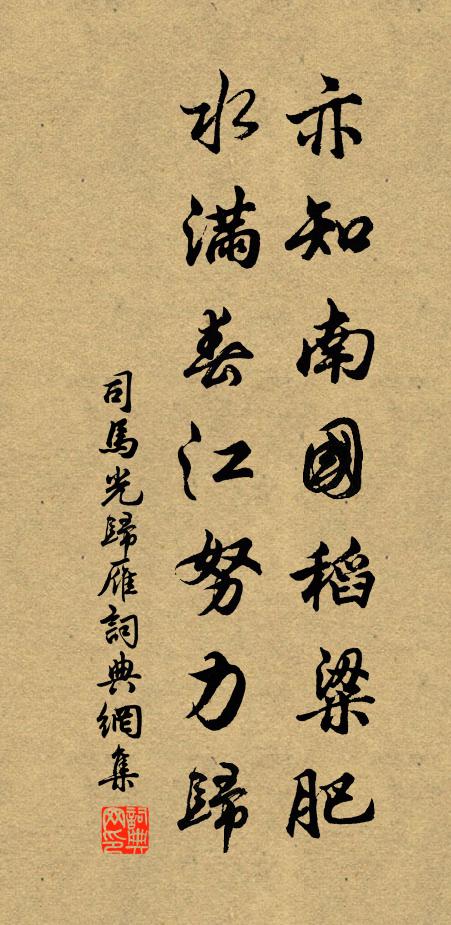 亦知南國稻粱肥
水滿春江努力歸
司馬光歸雁詞典網集
詞典網印